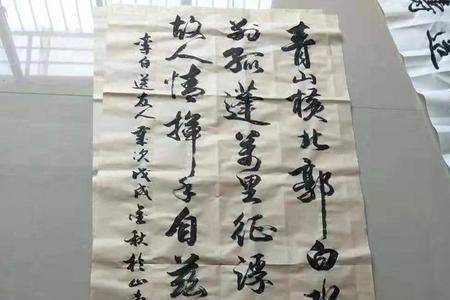 青山横北郭白水
别孤蓬萬里征浮
故人情揮手自兹
李白送友人歲次戊戌金秋於山